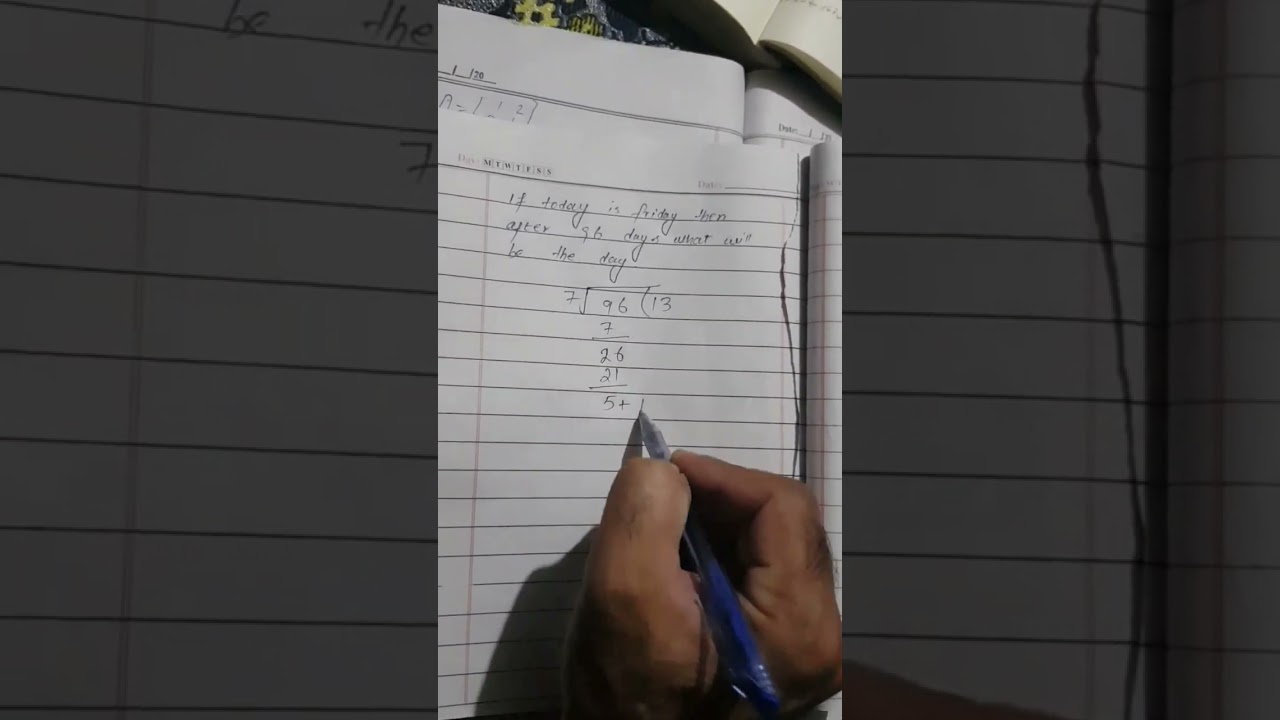 be the
7
1 /20
A = [ 1 2
Day: M T W T F S S
Date:
Date: 1 /20
If today is friday then
after 96 days what will
be the day
7 96 ( 13
7
26
21
5+